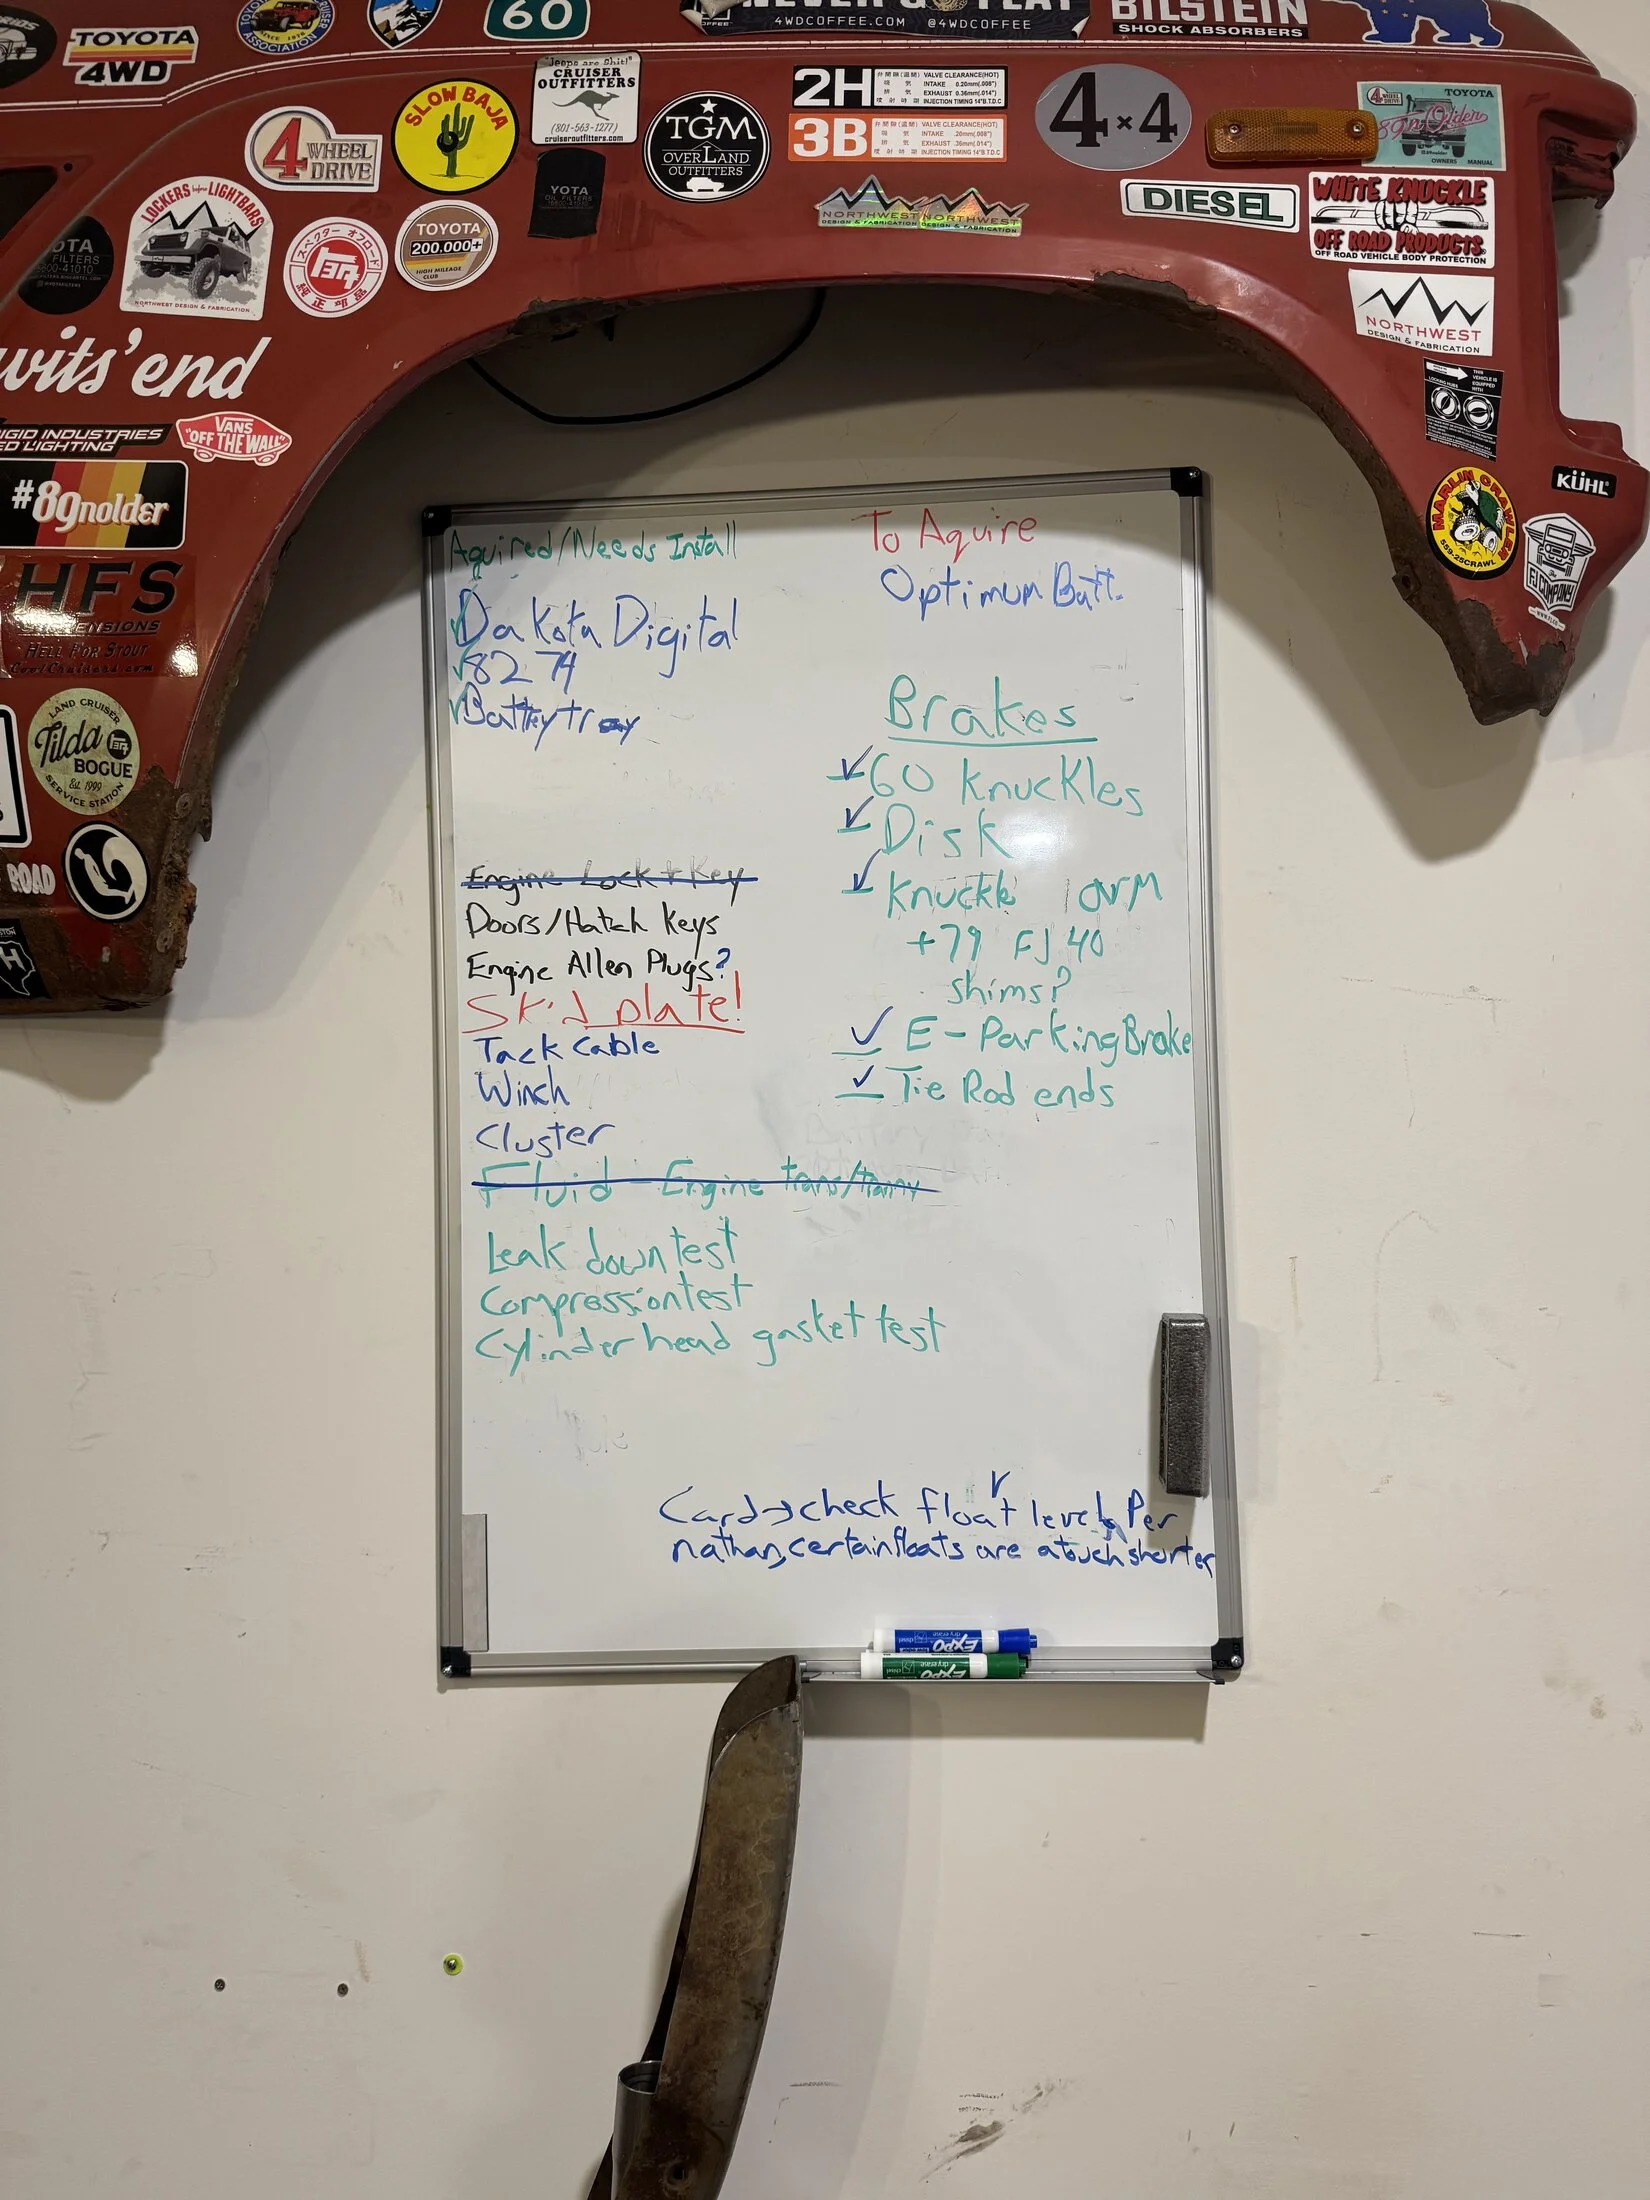 60
4WDCOFFEE.COM @4WDCOFFEE
BILSTEIN
SHOCK ABSORBERS
TOYOTA
4WD
ASSOCIATION
"Jeeps are Shit!"
CRUISER
OUTFITTERS
(801-563-1277)
cruiseroutfitters.com
SLOW BAJA
4 WHEEL
DRIVE
TGM
OVERLAND
OUTFITTERS
2H
VALVE CLEARANCE(HOT)
INTAKE 0.20mm(.008")
EXHAUST 0.36mm(.014")
INJECTION TIMING 14°B.T.D.C
3B
VALVE CLEARANCE(HOT)
INTAKE .20mm(.008")
EXHAUST .36mm(.014")
INJECTION TIMING 14°B.T.D.C
4×4
TOYOTA
89'n Older
OWNERS MANUAL
YOTA
OIL FILTERS
LOCKERS before LIGHTBARS
NORTHWEST DESIGN & FABRICATION
スペクター オフロード
TEQ
TOYOTA
200.000+
HIGH MILEAGE
CLUB
NORTHWEST
DESIGN & FABRICATION
NORTHWEST
DESIGN & FABRICATION
DIESEL
WHITE KNUCKLE
OFF ROAD PRODUCTS
OFF ROAD VEHICLE BODY PROTECTION
NORTHWEST
DESIGN & FABRICATION
wits' end
IGID INDUSTRIES
ED LIGHTING
VANS
"OFF THE WALL"
#89nolder
HFS
HELL FOR STOUT
CoolCruisers.com
LAND CRUISER
Tilda
TEQ
BOGUE
Est. 1999
SERVICE STATION
ROAD
THIS
VEHICLE IS
EQUIPPED
WITH
LOCKING HUBS
MARLIN CRAWLER
559-25CRAWL
KÜHL
The
FJ COMPANY
Aquired/Needs Install
✓Dakota Digital
✓8274
✓Battery tray
Engine Lock + Key
Doors/Hatch Keys
Engine Allen Plugs?
Skid plate!
Tack Cable
Winch
Cluster
Fluid - Engine trans/tranny
Leak down test
Compression test
Cylinder head gasket test
To Aquire
Optimum Batt.
Brakes
✓ 60 Knuckles
✓ Disk
✓ Knuckle arm
+79 FJ40
shims?
✓ E-Parking Brake
✓ Tie Rod ends
Card→check float level, Per
nathan, certain floats are a touch shorter
EXPO
dry erase
chisel
EXPO
dry erase
chisel